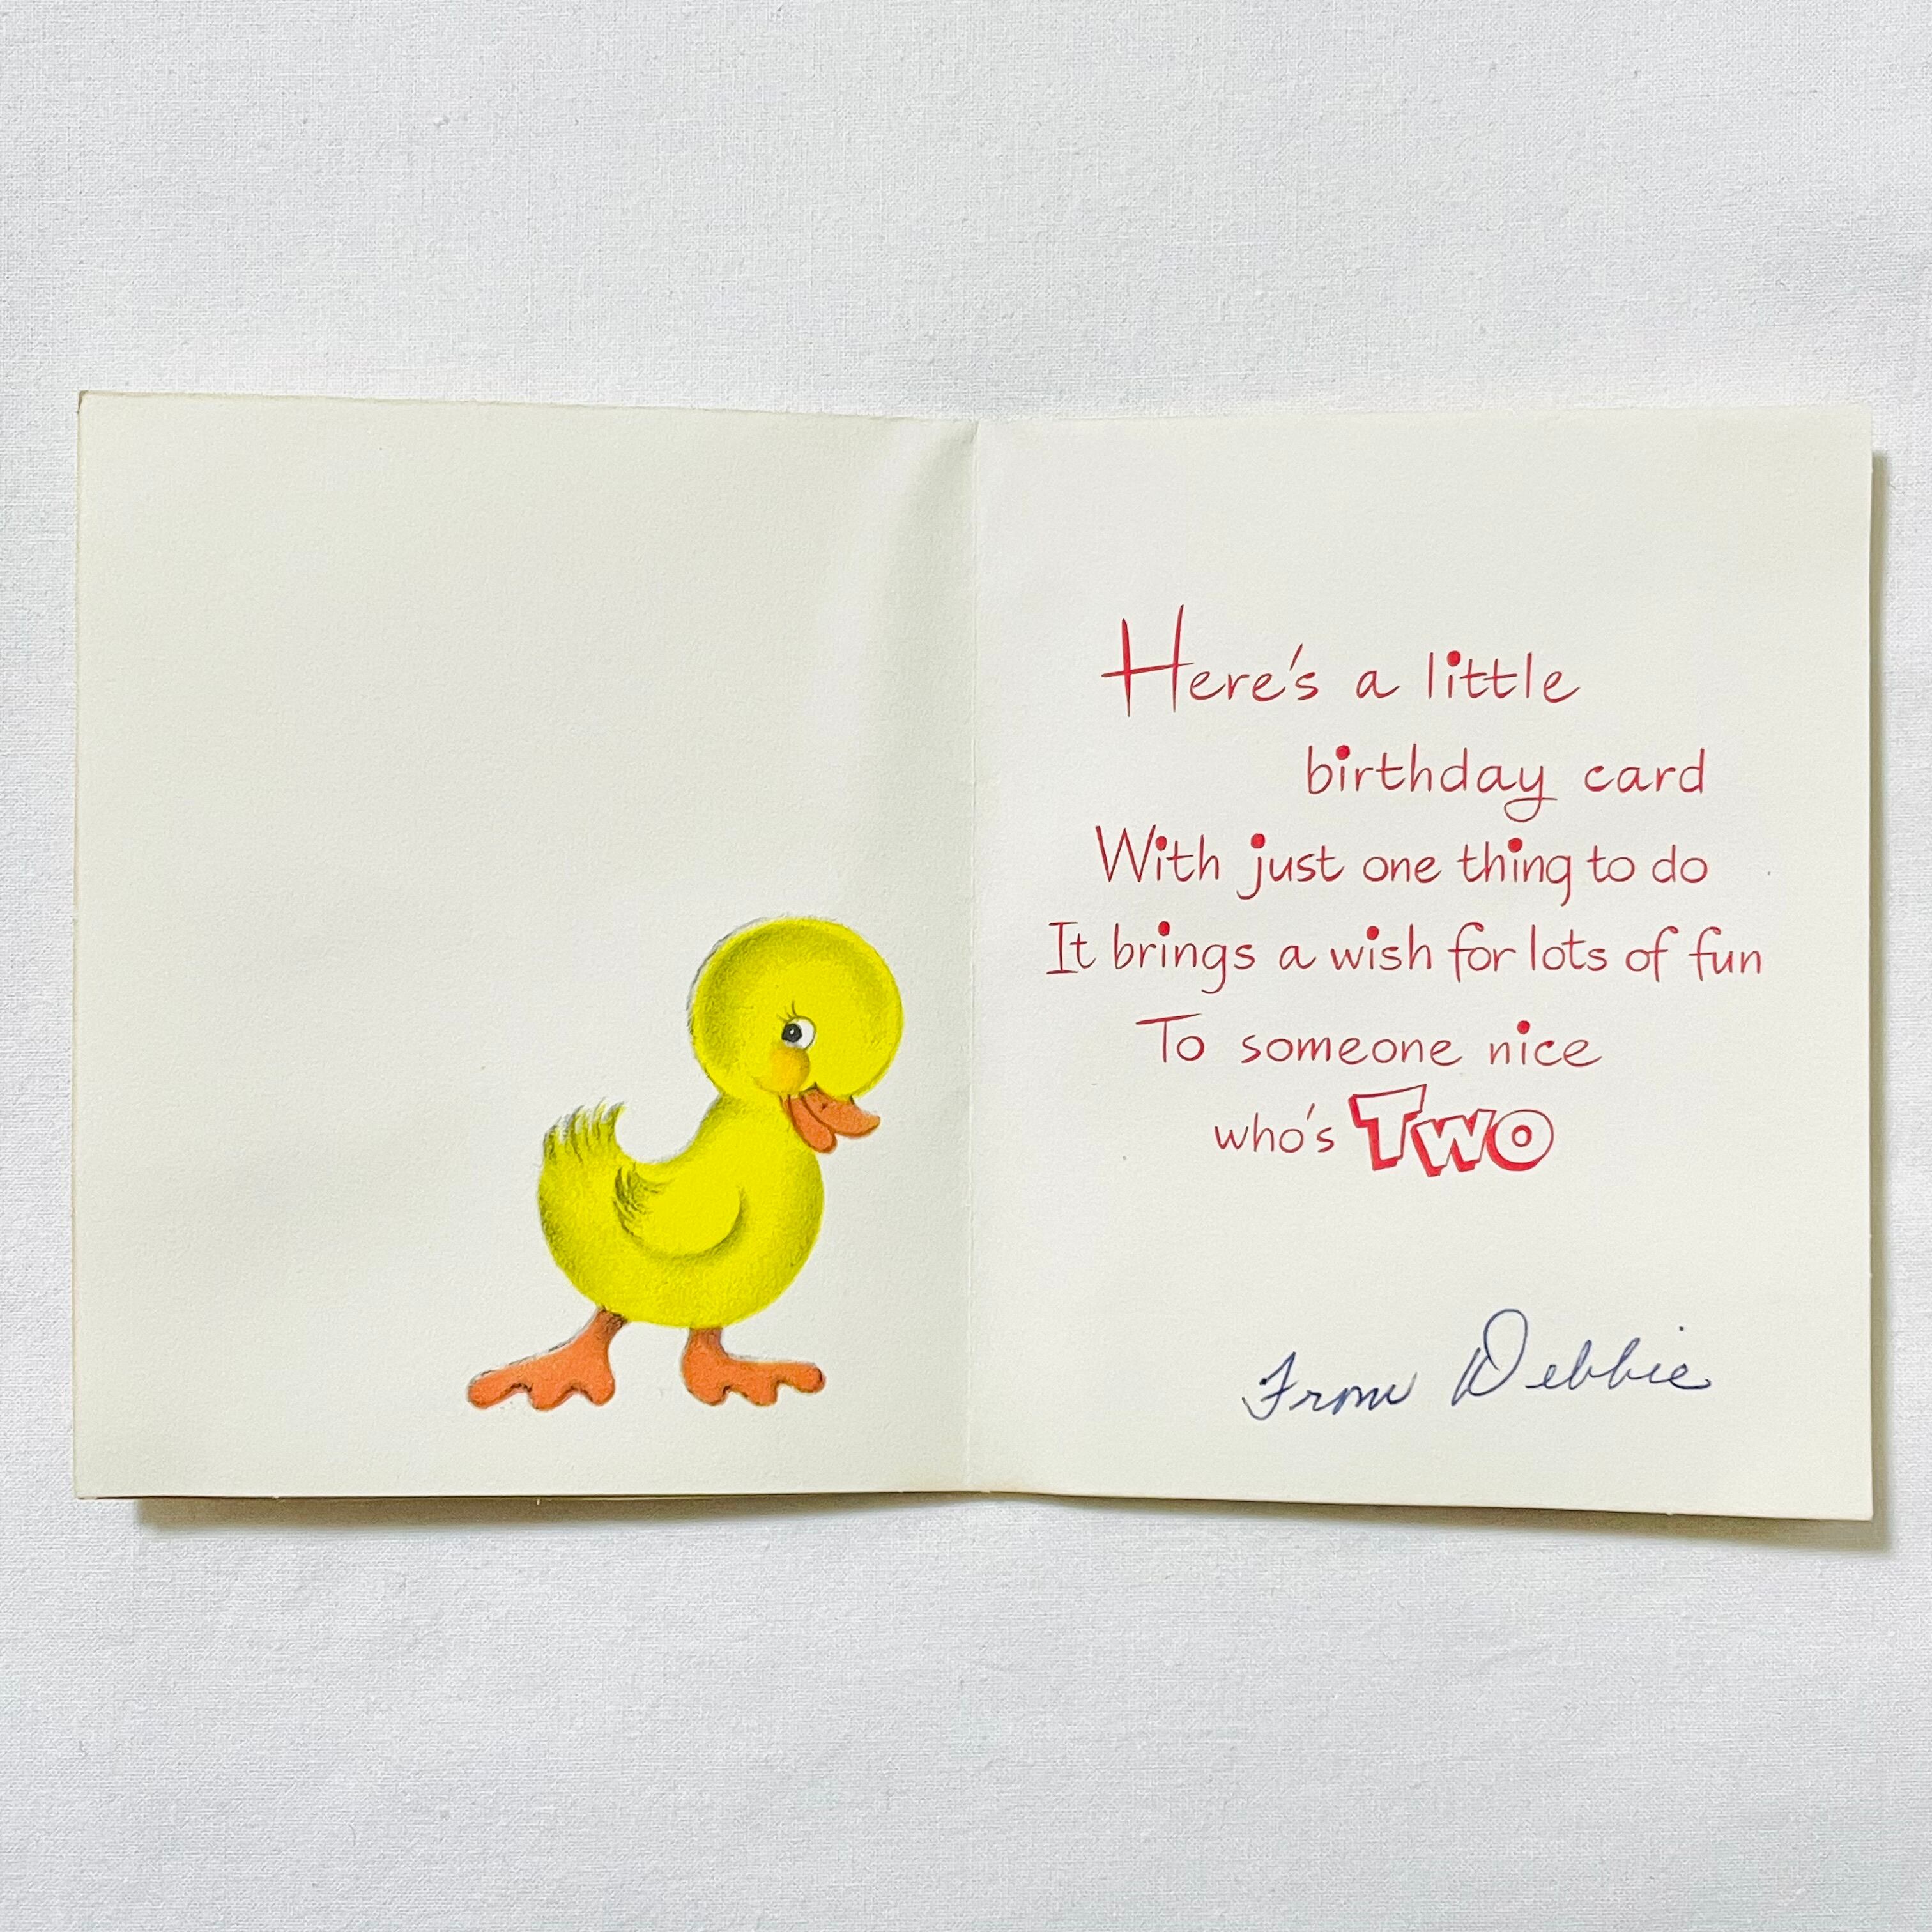 Here's a little
birthday card
With just one thing to do
It brings a wish for lots of fun
To someone nice
who's TWO
From Debbie